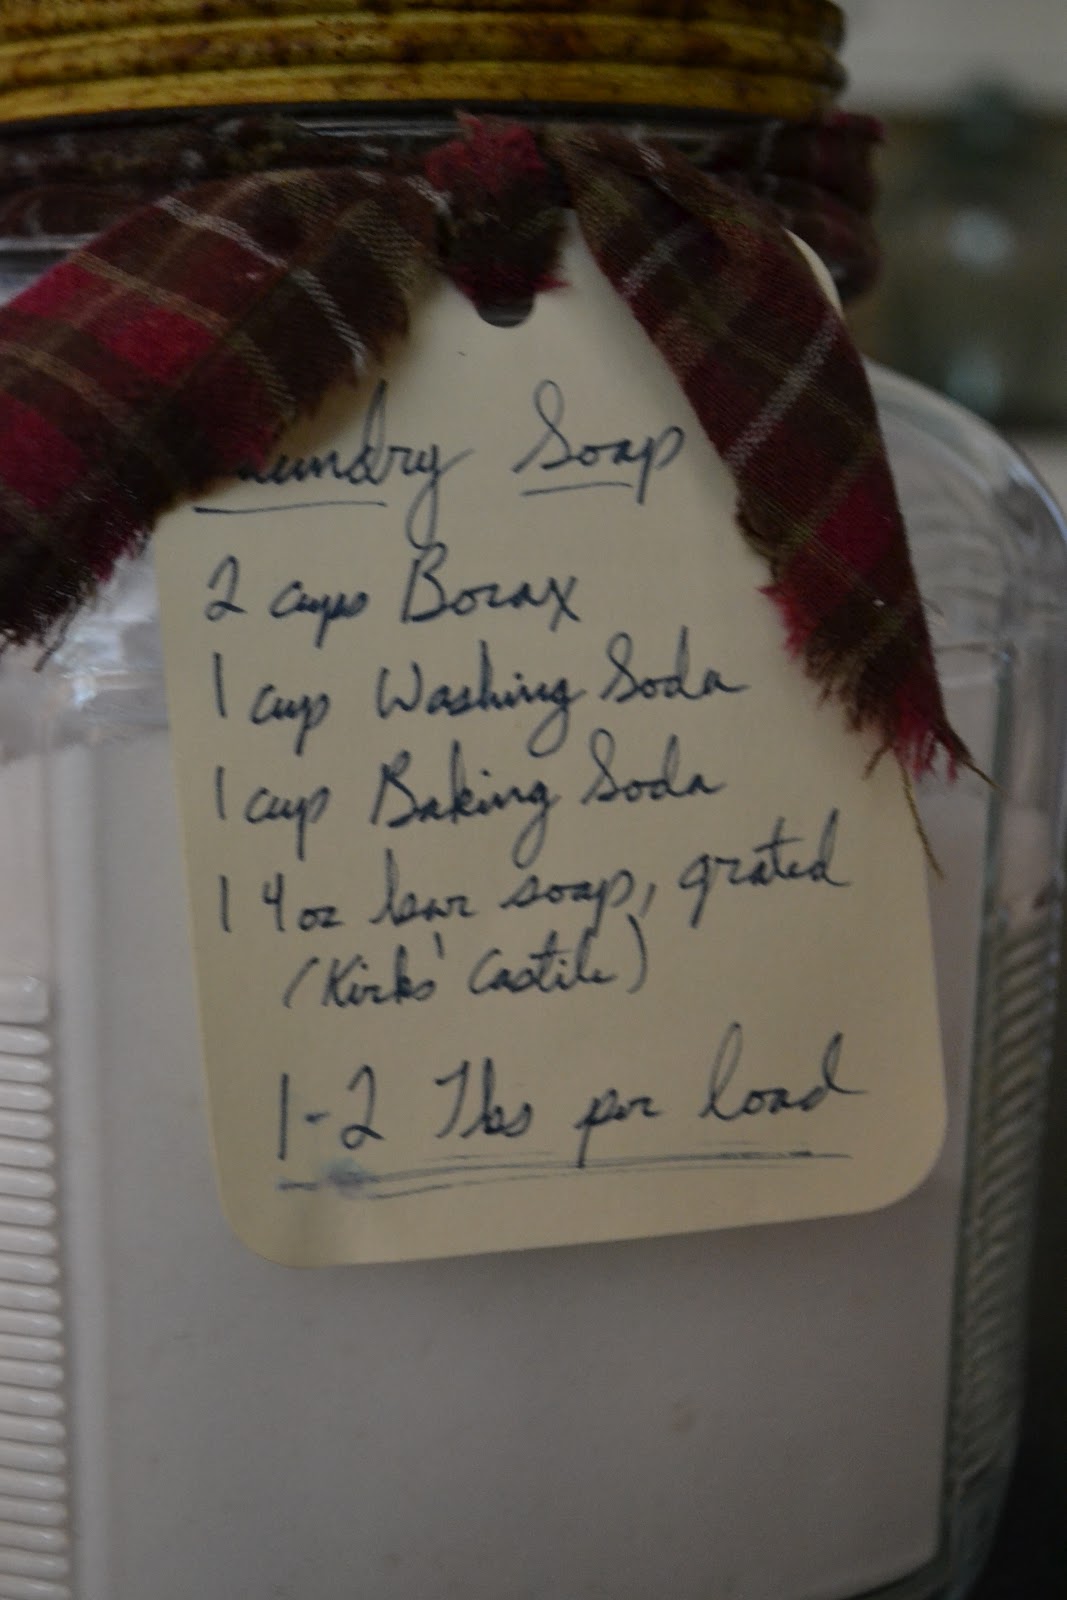 Laundry Soap
2 cups Borax
1 cup Washing Soda
1 cup Baking Soda
1 4oz bar soap, grated
(Kirks' Castile)
1-2 Tbs per load